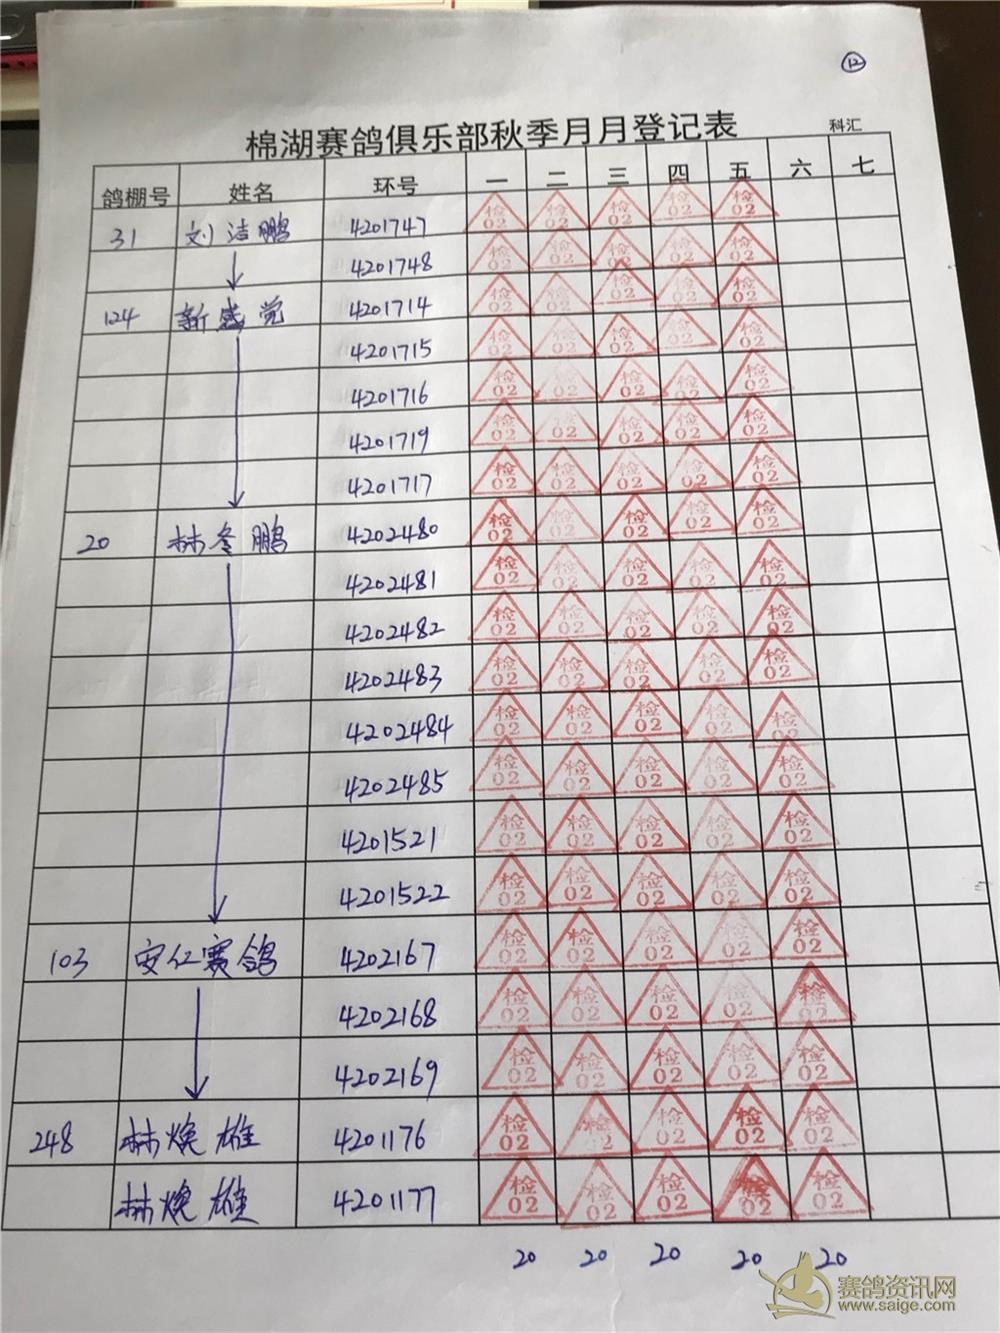 ⑫
棉湖赛鸽俱乐部秋季月月登记表 科汇
鸽棚号 姓名 环号 一 二 三 四 五 六 七
31 刘洁鹏 4201747 检02 检02 检02 检02 检02
4201748 检02 检02 检02 检02 检02
124 新感觉 4201714 检02 检02 检02 检02 检02
4201715 检02 检02 检02 检02 检02
4201716 检02 检02 检02 检02 检02
4201719 检02 检02 检02 检02 检02
4201717 检02 检02 检02 检02 检02
20 林冬鹏 4202480 检02 检02 检02 检02 检02
4202481 检02 检02 检02 检02 检02
4202482 检02 检02 检02 检02 检02
4202483 检02 检02 检02 检02 检02
4202484 检02 检02 检02 检02 检02
4202485 检02 检02 检02 检02 检02
4201521 检02 检02 检02 检02 检02
4201522 检02 检02 检02 检02 检02
103 安仁赛鸽 4202167 检02 检02 检02 检02 检02
4202168 检02 检02 检02 检02 检02
4202169 检02 检02 检02 检02 检02
248 林焕雄 4201176 检02 检02 检02 检02 检02
林焕雄 4201177 检02 检02 检02 检02 检02
20 20 20 20 20
赛鸽资讯网
www.saige.com